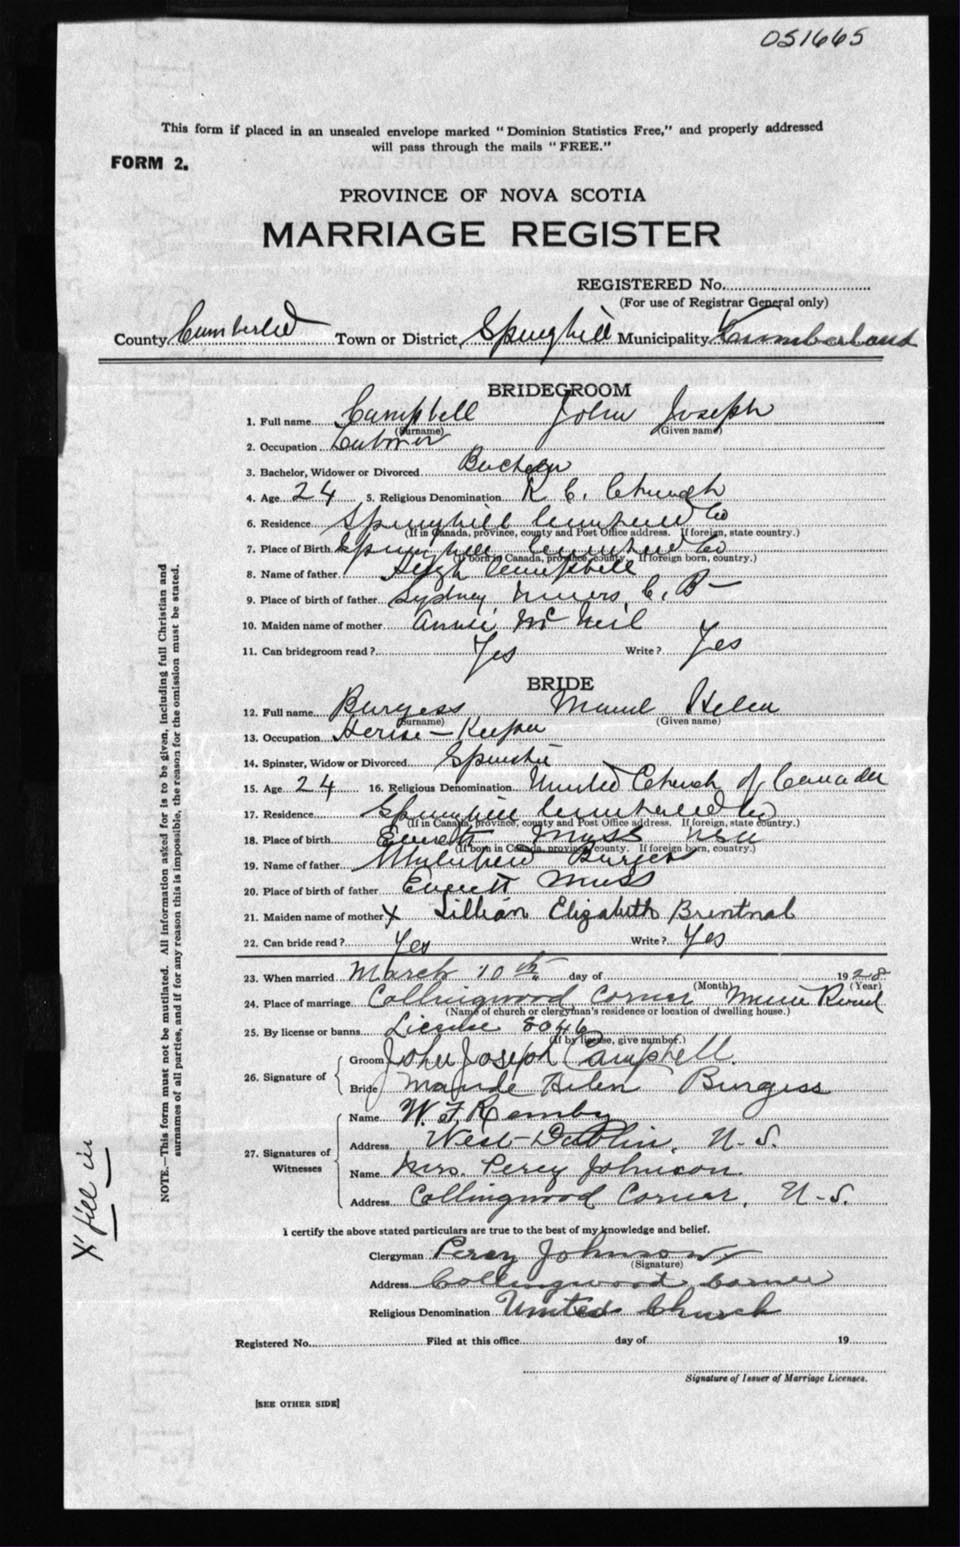 051665
This form if placed in an unsealed envelope marked "Dominion Statistics Free," and properly addressed
will pass through the mails "FREE."
FORM 2.
PROVINCE OF NOVA SCOTIA
MARRIAGE REGISTER
REGISTERED No.
(For use of Registrar General only)
County Town or District Springhill Municipality Cumberland
BRIDEGROOM
1. Full name Campbell John Joseph
(Surname) (Given name)
2. Occupation
3. Bachelor, Widower or Divorced Bachelor
4. Age 24 5. Religious Denomination R. C. Church
6. Residence Springhill Co
(If in Canada, province, county and Post Office address. If foreign, state country.)
7. Place of Birth Springhill Co
(If born in Canada, province, county. If foreign born, country.)
8. Name of father Hugh Campbell
9. Place of birth of father Sydney Mines, C. B
10. Maiden name of mother Annie Mc Neil
11. Can bridegroom read? Yes Write? Yes
BRIDE
12. Full name Burgess Maud Helen
(Surname) (Given name)
13. Occupation House-Keeper
14. Spinster, Widow or Divorced Spinster
15. Age 24 16. Religious Denomination United Church of Canada
17. Residence Springhill Co
(If in Canada, province, county and Post Office address. If foreign, state country.)
18. Place of birth Everett Mass USA
(If born in Canada, province county. If foreign born, country.)
19. Name of father Burgess
20. Place of birth of father Everett Mass
21. Maiden name of mother X Lillian Elizabeth Brentnal
22. Can bride read? Yes Write? Yes
23. When married March 10th day of 1928
(Month) (Year)
24. Place of marriage Collingwood Corner
(Name of church or clergyman's residence or location of dwelling house.)
25. By license or banns License 8046
(If by license, give number.)
26. Signature of
Groom John Joseph Campbell.
Bride Maude Helen Burgess
27. Signatures of Witnesses
Name W. F.
Address West-Dublin, N.S.
Name Mrs. Percy Johnson.
Address Collingwood Corner, N-S.
I certify the above stated particulars are true to the best of my knowledge and belief.
Clergyman Percy Johnson
(Signature)
Address Collingwood Corner
Religious Denomination United Church
Registered No. Filed at this office day of 19
Signature of Issuer of Marriage Licenses.
[SEE OTHER SIDE]
NOTE.—This form must not be mutilated. All information asked for is to be given, including full Christian and
surnames of all parties, and if for any reason this is impossible, the reason for the omission must be stated.
'X' fill in